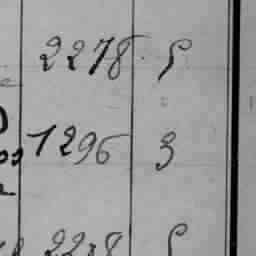 2278 5
1296 3
2278 5